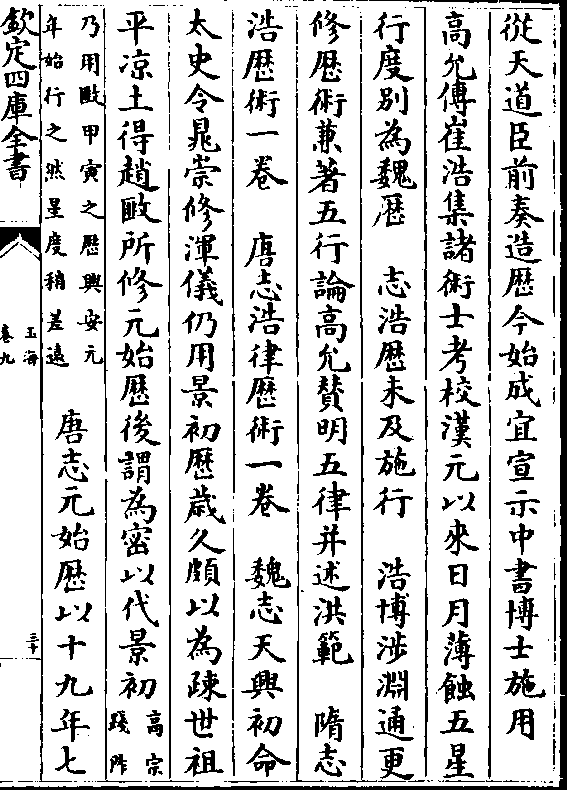 從天道臣前奏造歴今始成宜宣示中書博士施用
高允傳崔浩集諸術士考校漢元以來日月薄蝕五星
行度别為魏歴　志浩歴未及施行　浩博涉淵通更
修歴術兼著五行論高允賛明五律并述洪範　隋志
浩歴術一卷　唐志浩律歴術一卷　魏志天興初命
太史令晁崇修渾儀仍用景初歴歳久頗以為疎世祖
平凉土得趙𢾺所修元始歴後謂為宻以代景初高宗踐阼
乃用𢾺甲寅之歴興安元年始行之然星度稍差逺　唐志元始歴以十九年七
欽定四庫全書
玉海
卷九
三十